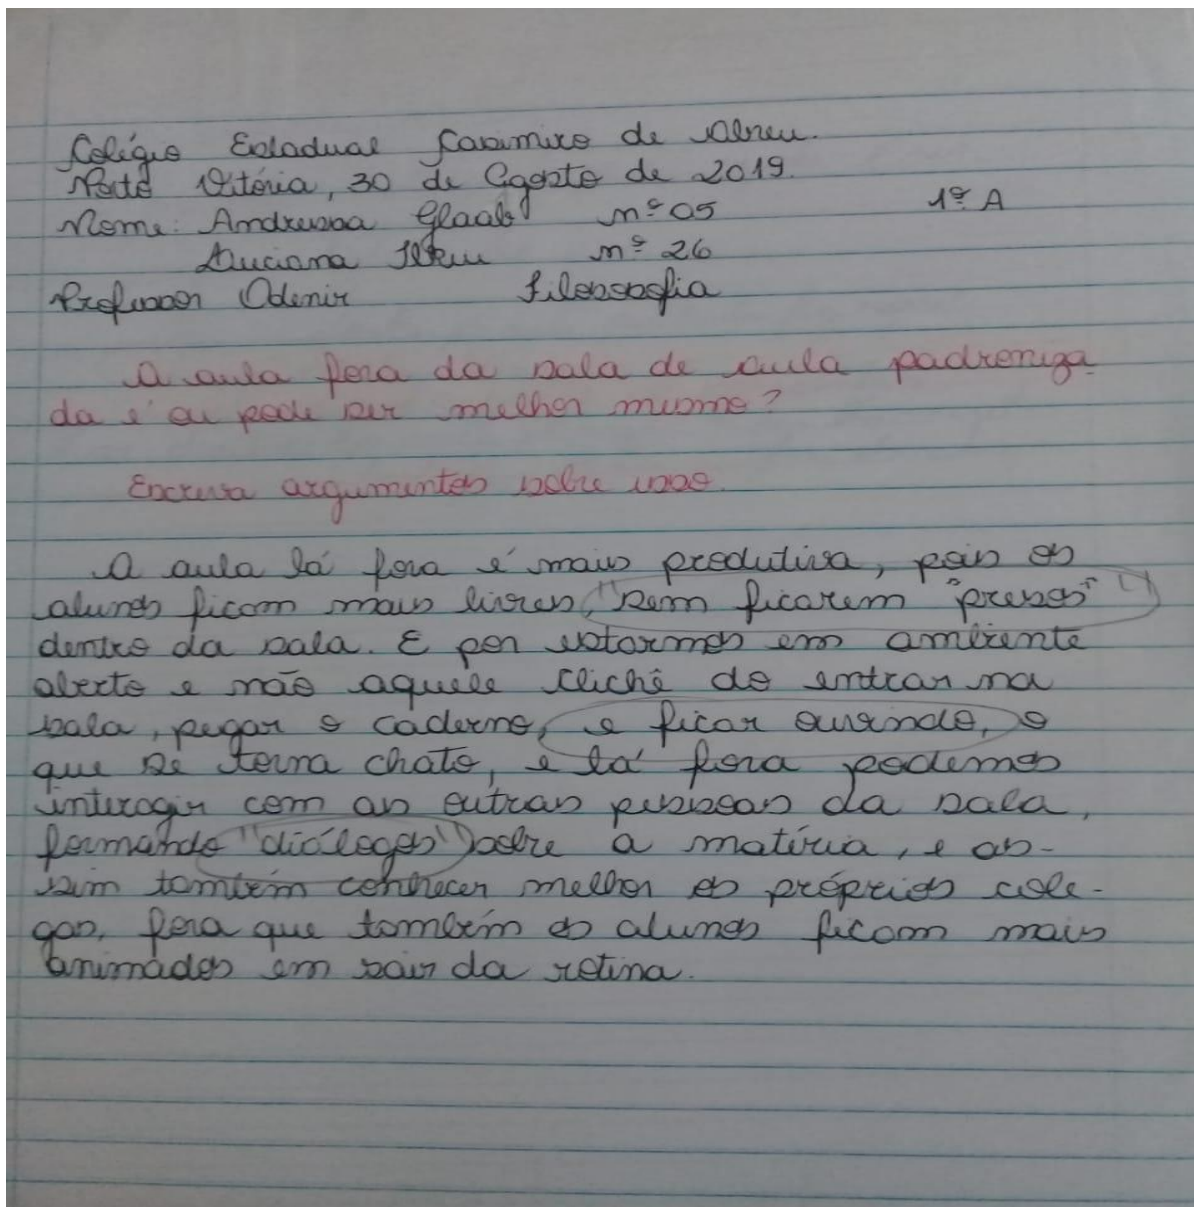 Colégio Estadual Casimiro de Abreu.
Porto Vitória, 30 de Agosto de 2019.
Nome: Andressa Glaab nº 05 1º A
Luciana nº 26
Professor Odenir Filososofia
A aula fora da sala de aula padroniza-
da é ou pode ser melhor mesmo?
Escreva argumentos sobre isso.
A aula lá fora é mais produtiva, pois os
alunos ficam mais livres, "sem ficarem "presos""
dentro da sala. E por estarmos em ambiente
aberto e não aquele clichê do entrar na
sala, pegar o caderno, e ficar ouvindo, o
que se torna chato, e lá fora podemos
interagir com as outras pessoas da sala,
formando "diálogos" sobre a matéria, e as-
sim também conhecer melhor os próprios cole-
gas, fora que também os alunos ficam mais
animados em sair da rotina.